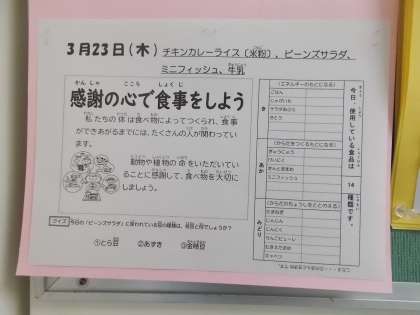 3月23日（木） チキンカレーライス〔米粉〕、ビーンズサラダ、
ミニフィッシュ、牛乳
感謝の心で食事をしよう
私たちの体は食べ物によってつくられ、食事
ができあがるまでには、たくさんの人が関わってい
ます。
動物や植物の命をいただいてい
ることに感謝して、食べ物を大切に
しましょう。
クイズ 今日の「ビーンズサラダ」に使われている豆の種類は、枝豆と何でしょうか？
①とら豆 ②あずき ③金時豆
今日、使用している食品は 14 種類です。
き
（エネルギーのもとになる）
ごはん
じゃがいも
さとう
あか
（からだをつくるもとになる）
ぎゅうにゅう
ミニフィッシュ
みどり
（からだのちょうしをととのえる）
たまねぎ
にんじん
にんにく
りんごピューレ
キャベツ